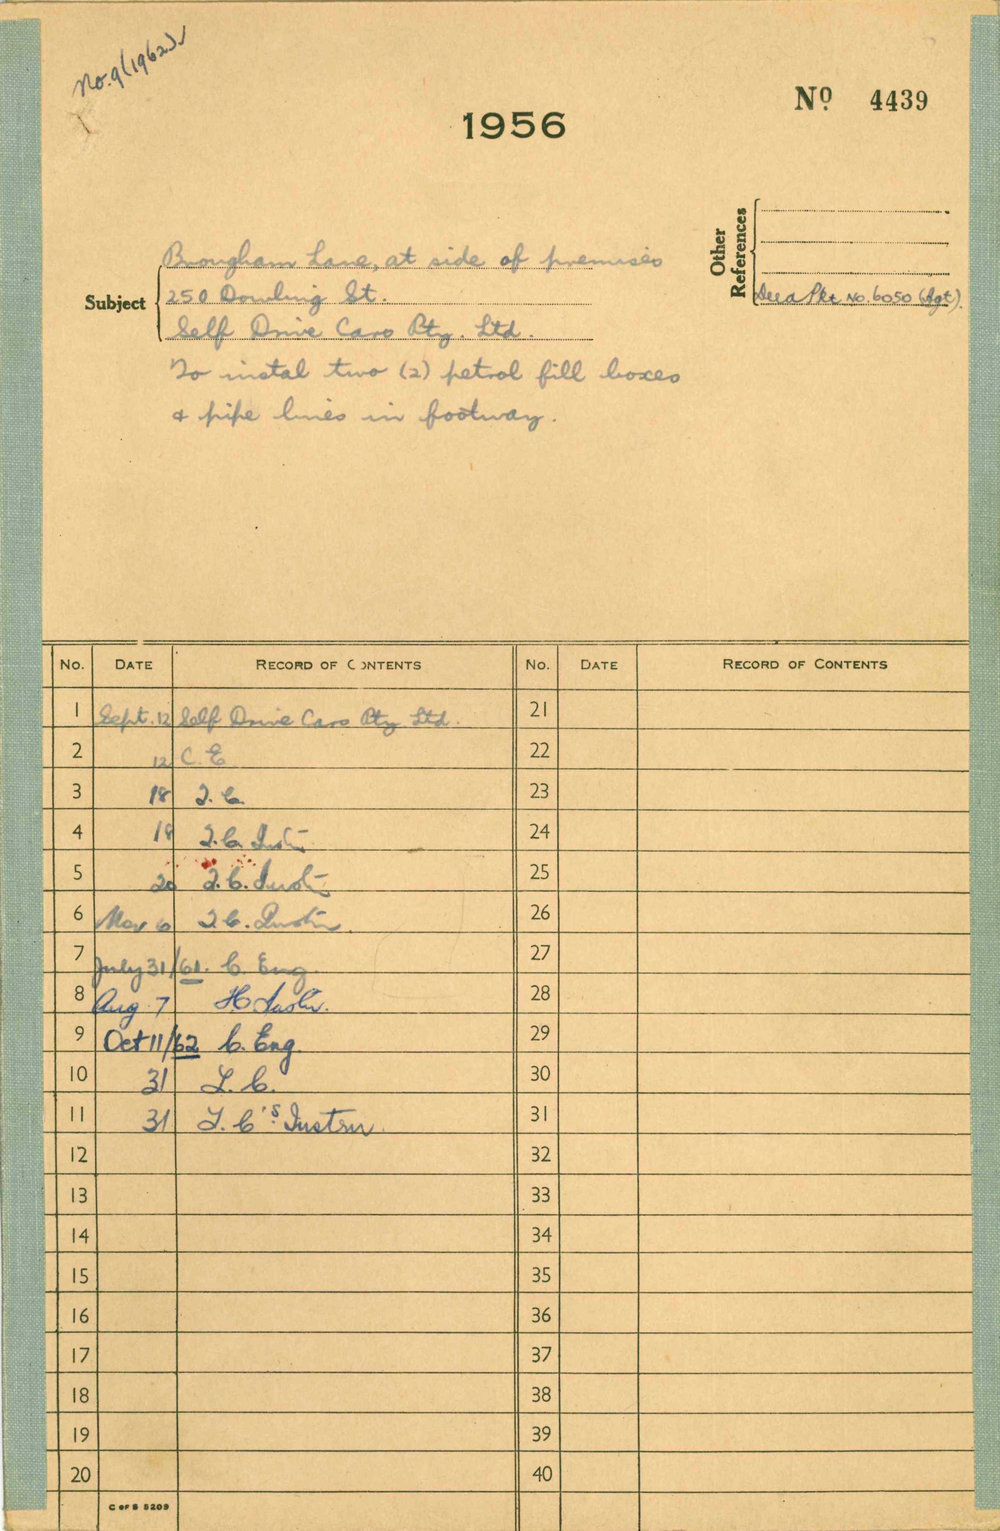 No. 9 (1962)
No 4439
1956
Other References
Deed Pkt No. 6050 (Agt).
Subject
Brougham Lane, at side of premises
250 Dowling St.
Self Drive Cars Pty. Ltd.
To instal two (2) petrol fill boxes
& pipe lines in footway.
No. DATE RECORD OF CONTENTS No. DATE RECORD OF CONTENTS
1 Sept. 12 Self Drive Cars Pty Ltd. 21
2 12 C. E 22
3 18 T. C. 23
4 18 T. C. 24
5 20 T. C. 25
6 T. C. 26
7 July 31/61. C. Eng. 27
8 Aug. 7 28
9 Oct 11/62 C. Eng. 29
10 31 T. C. 30
11 31 T. C's Instrn. 31
12 32
13 33
14 34
15 35
16 36
17 37
18 38
19 39
20 40
C OF S 5209